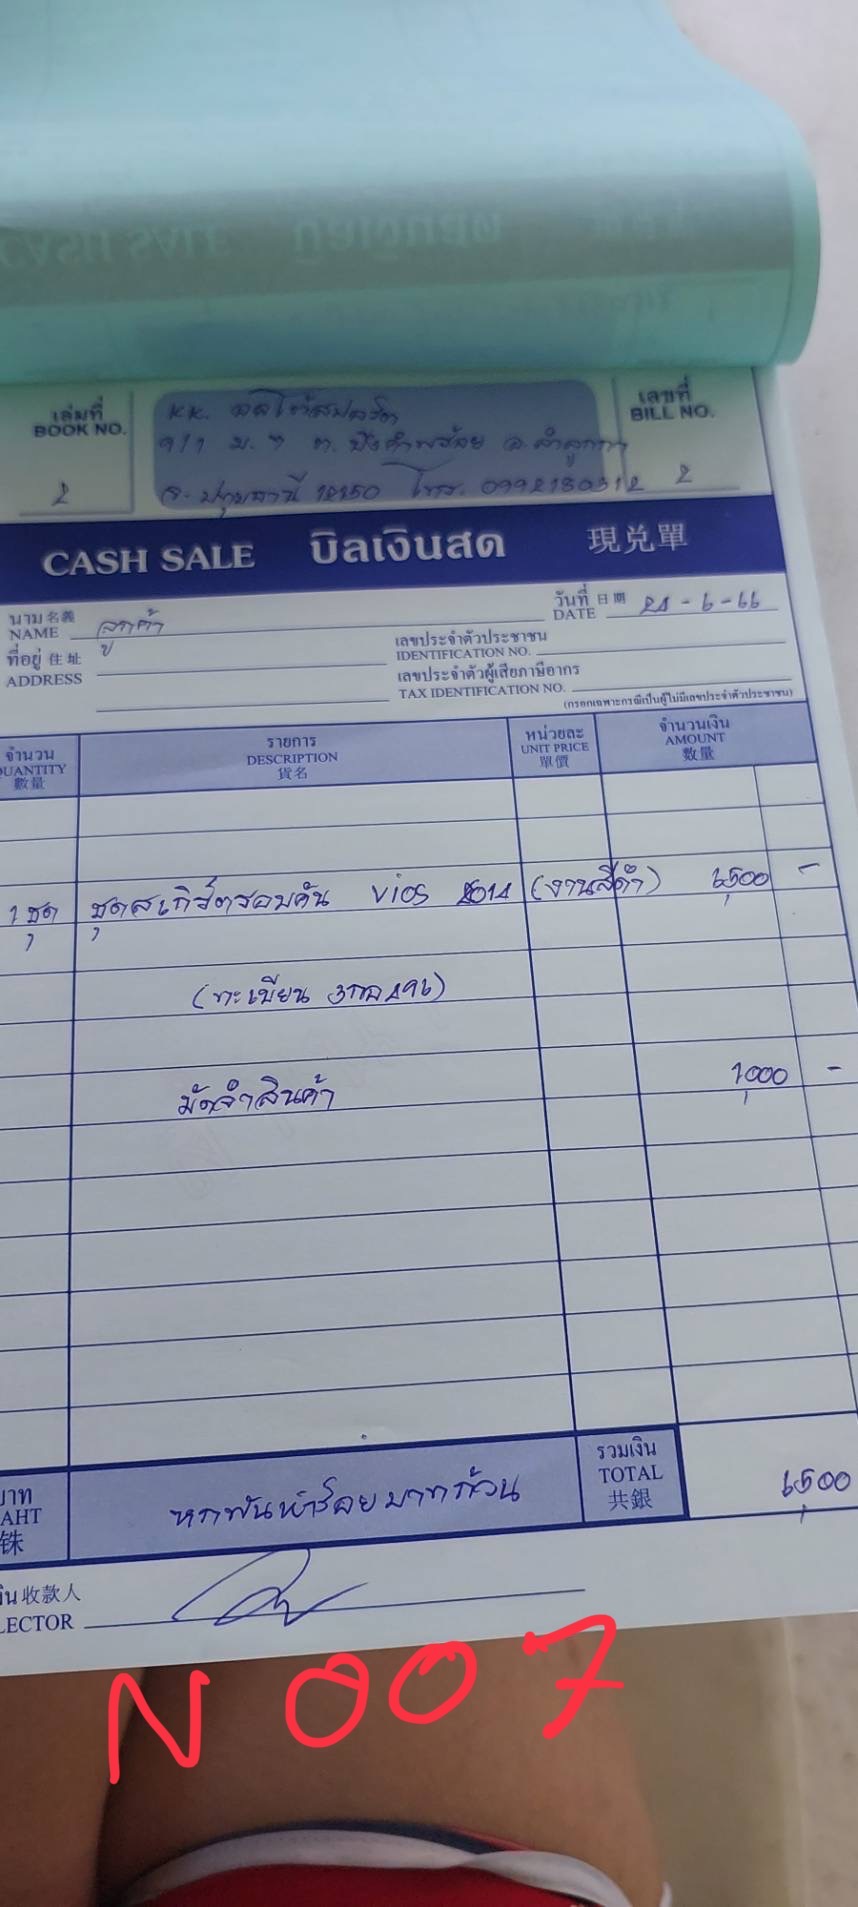 เล่มที่
BOOK NO.
2
KK. ออโต้สปอร์ต
9/1 ม. 7 ต. บึงคำพร้อย อ. ลำลูกกา
จ. ปทุมธานี 12150 โทร. 0992180312
เลขที่
BILL NO.
2
CASH SALE บิลเงินสด 現兑單
นาม 名義
NAME ลูกค้า
วันที่ 日期
DATE 24-6-66
ที่อยู่ 住址
ADDRESS
เลขประจำตัวประชาชน
IDENTIFICATION NO.
เลขประจำตัวผู้เสียภาษีอากร
TAX IDENTIFICATION NO.
(กรอกเฉพาะกรณีเป็นผู้ไม่มีเลขประจำตัวประชาชน)
จำนวน
QUANTITY
數量
รายการ
DESCRIPTION
貨名
หน่วยละ
UNIT PRICE
單價
จำนวนเงิน
AMOUNT
數量
1 ชุด ชุดสเกิร์ตรอบคัน vios 2014 (งานสีดำ) 6,500 -
(ทะเบียน 496)
มัดจำสินค้า 1,000 -
บาท
BAHT
铢
หกพันห้าร้อยบาทถ้วน
รวมเงิน
TOTAL
共銀
6,500
收款人
LECTOR
N 007